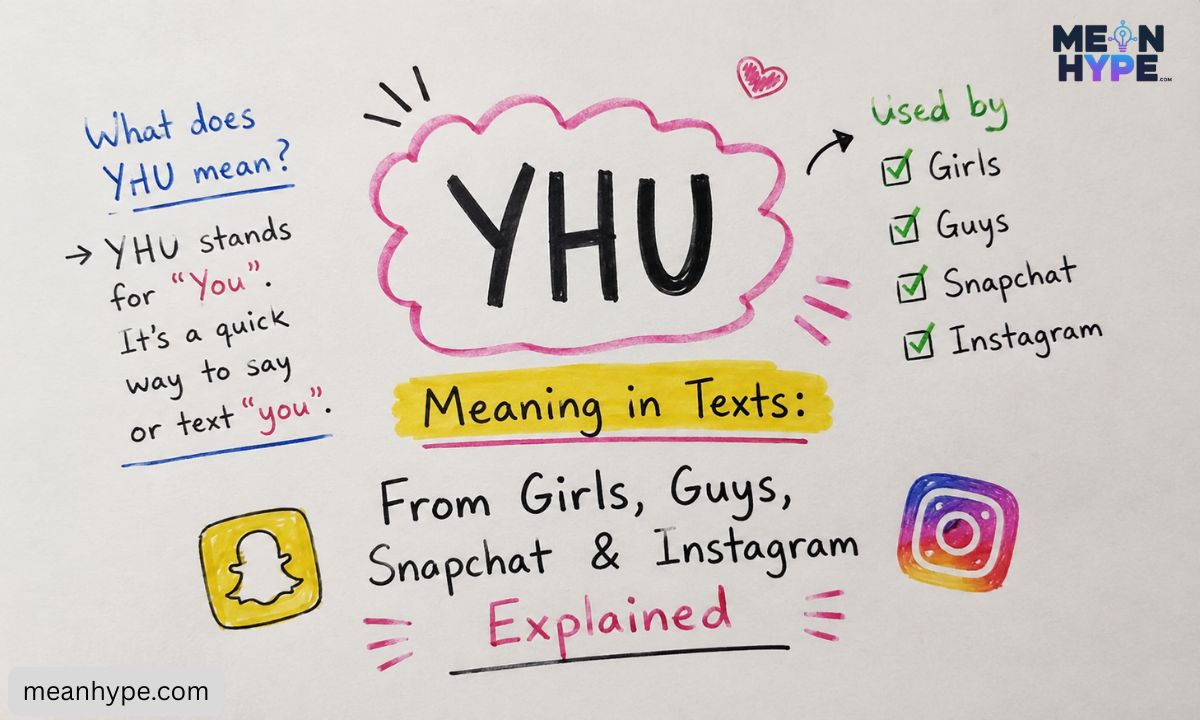 MEAN
HYPE.COM
What does
YHU mean?
→ YHU stands
for "You".
It's a quick
way to say
or text "you".
YHU
Used by
Girls
Guys
Snapchat
Instagram
Meaning in Texts:
From Girls, Guys,
Snapchat & Instagram
Explained
meanhype.com